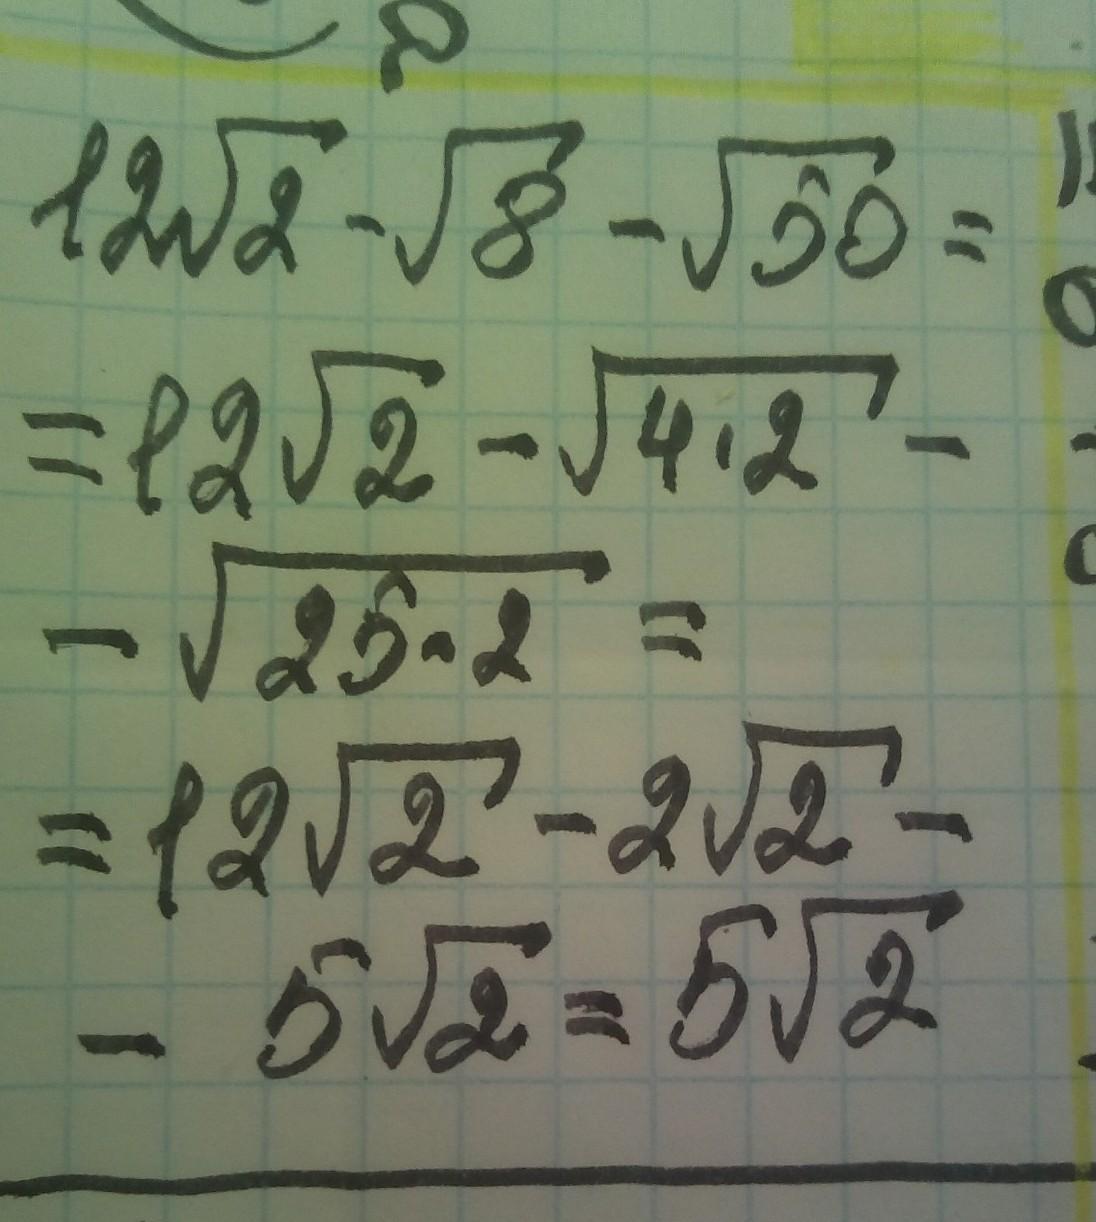 12√2 - √8 - √50 =
= 12√2 - √4·2 -
- √25·2 =
= 12√2 - 2√2 -
- 5√2 = 5√2